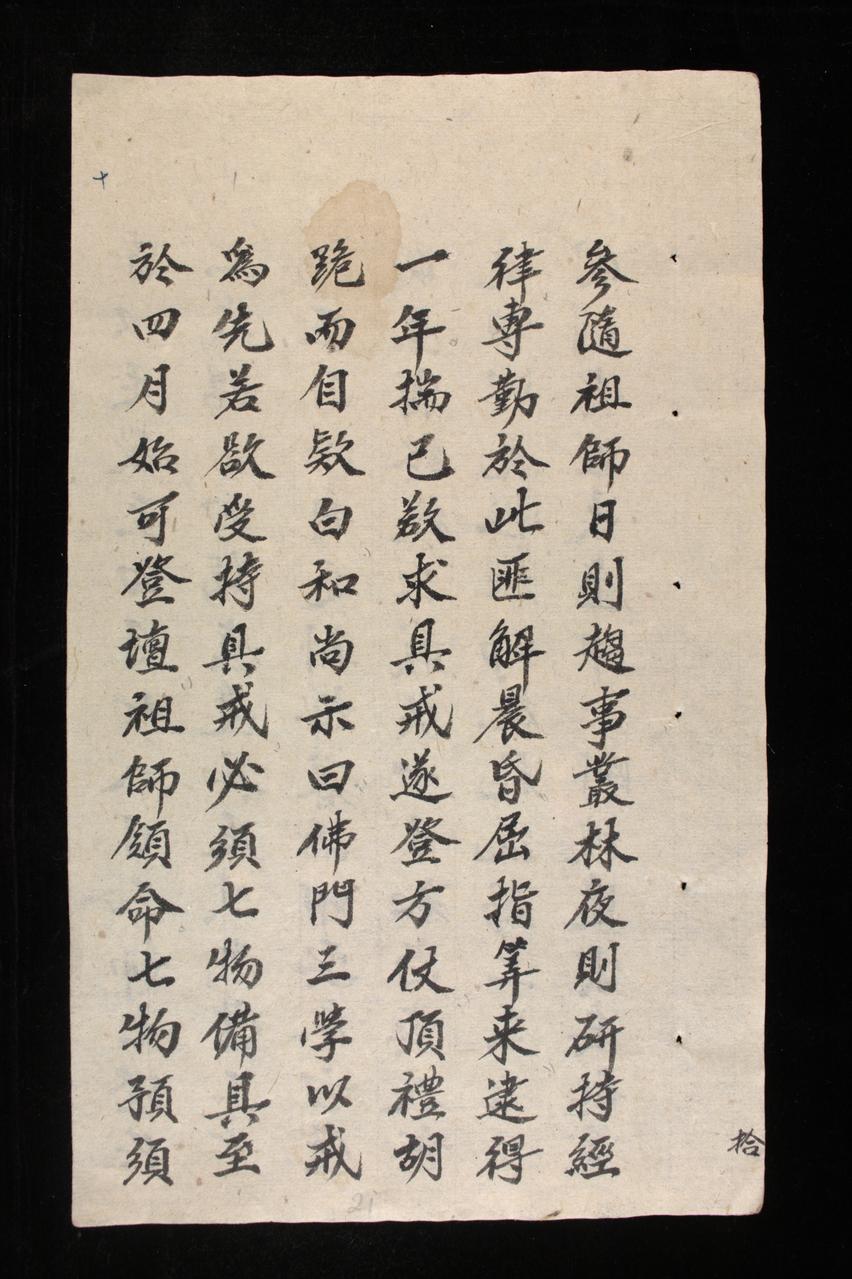 參隨祖師日則趨事叢林夜則研持經
律專勤於此匪解晨昏屈指筭来逮得
一年揣已欲求具戒遂登方仗頂禮胡
跪而自欵白和尚示曰佛門三學以戒
爲先若欲受持具戒必須七物備具至
於四月始可登壇祖師領命七物預須
拾
十
21